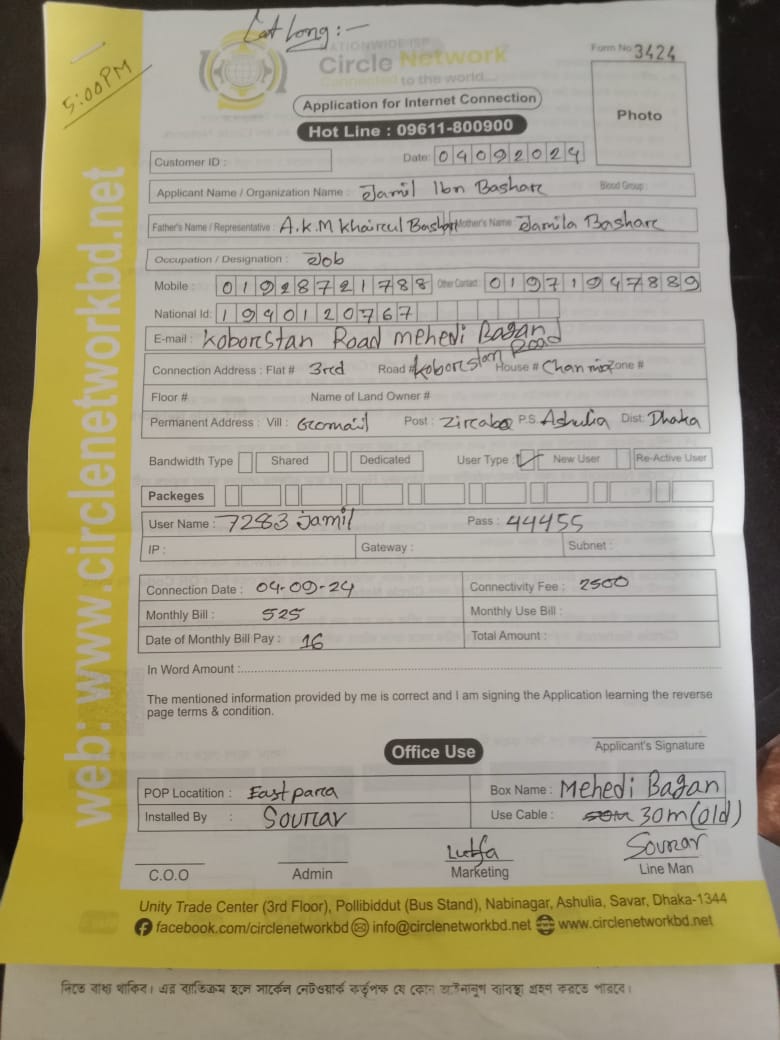 Lat Long :-
5:00PM
NATIONWIDE ISP
Circle Network
Connected to the world...
Form No 3424
Application for Internet Connection
Photo
Hot Line : 09611-800900
Customer ID :
Date: 04092024
Applicant Name / Organization Name : Jamil Ibn Bashar Blood Group :
Father's Name / Representative : A.K.M Khairul Bashar Mother's Name : Jamila Bashar
Occupation / Designation : Job
Mobile : 01928721788 Other Contact : 01971947889
National Id: 1940120767
E-mail : Koborstan Road Mehedi Bagan
Connection Address : Flat # 3rd Road # Koborstan Road House # Chan Zone #
Floor # Name of Land Owner #
Permanent Address : Vill : Post : Zirabo P.S. Ashulia Dist: Dhaka
Bandwidth Type Shared Dedicated User Type : ✓ New User Re-Active User
Packeges
User Name : 7283 Jamil Pass : 44455
IP : Gateway : Subnet :
Connection Date : 04-09-24 Connectivity Fee : 2500
Monthly Bill : 525 Monthly Use Bill :
Date of Monthly Bill Pay : 16 Total Amount :
In Word Amount :
The mentioned information provided by me is correct and I am signing the Application learning the reverse
page terms & condition.
Applicant's Signature
Office Use
POP Locatition : East para Box Name : Mehedi Bagan
Installed By : Sourav Use Cable : 30m (old)
Lutfa Sourav
C.O.O Admin Marketing Line Man
Unity Trade Center (3rd Floor), Pollibiddut (Bus Stand), Nabinagar, Ashulia, Savar, Dhaka-1344
facebook.com/circlenetworkbd info@circlenetworkbd.net www.circlenetworkbd.net
web: www.circlenetworkbd.net
নিতে বাধ্য থাকিব। এর ব্যতিক্রম হলে সার্কেল নেটওয়ার্ক কর্তৃপক্ষ যে কোন আইনানুগ ব্যবস্থা গ্রহণ করতে পারবে।